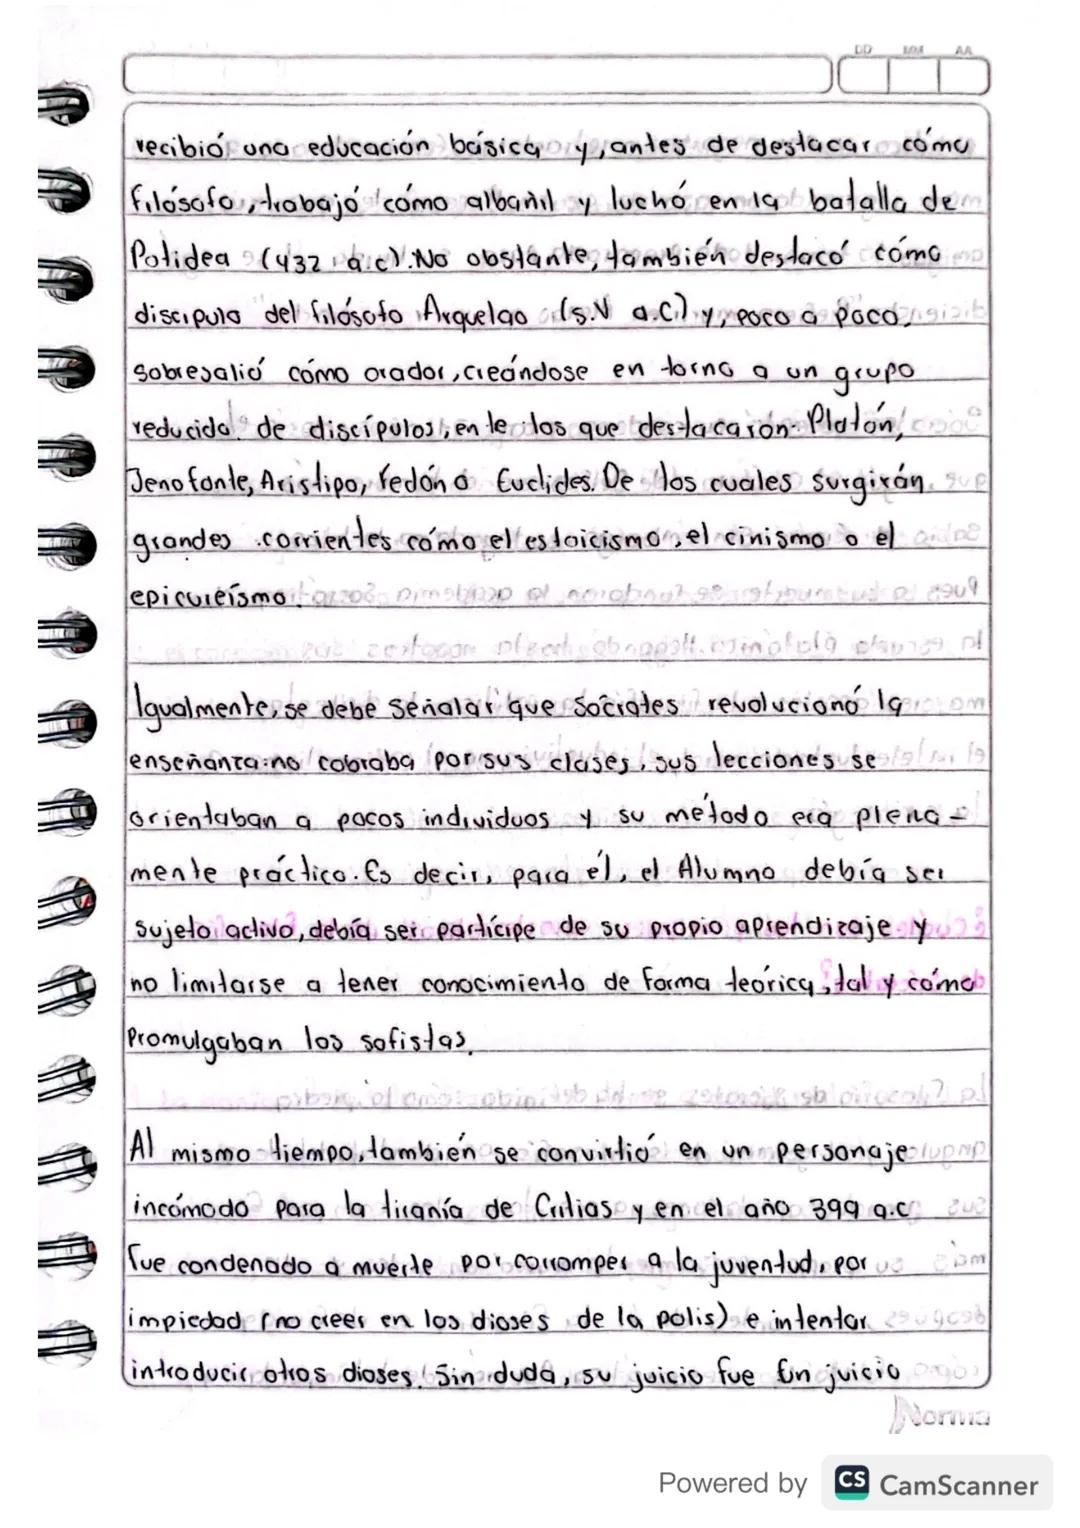 DD MM AA
recibió una educación básica y, antes de destacar cómo
filósofo, trabajó cómo albañil y luchó en la batalla de
Potidea (432 a.c). No obstante, también destacó cómo
discipulo del filósofo Arquelao (s.V a.C) y, poco a poco,
sobresalió cómo orador, creándose en torno a un grupo
reducido de discípulos, entre los que destacaron: Platón,
Jenofonte, Aristipo, Fedón o Euclides. De los cuales surgirán
grandes corrientes cómo el estoicismo, el cinismo o el
epicureísmo.
Igualmente, se debe señalar que Sócrates revolucionó la
enseñanza: no cobraba por sus clases, sus lecciones se
orientaban a pocos individuos y su método era plena-
mente práctico. Es decir, para él, el Alumno debía ser
sujeto activo, debía ser partícipe de su propio aprendizaje y
no limitarse a tener conocimiento de forma teórica, tal y cómo
Promulgaban los sofistas.
Al mismo tiempo, también se convirtió en un personaje
incómodo para la tiranía de Critias y en el año 399 a.c
fue condenado a muerte por corromper a la juventud, por
impiedad (no creer en los dioses de la polis) e intentar
introducir otros dioses. Sin duda, su juicio fue un juicio
Norma
Powered by CS CamScanner